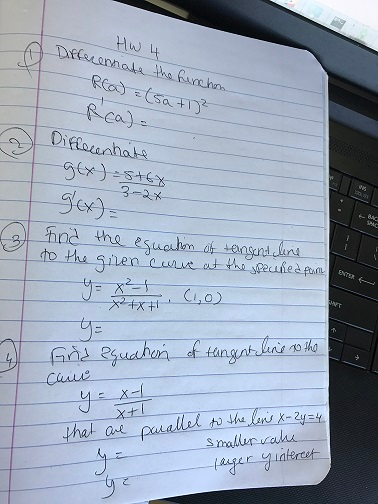 HW 4
1 Differentiate the function
R(a) = (5a+1)²
R'(a) =
2 Differentiate
g(x) = 5+6x / 3-2x
g'(x) =
3 Find the equation of tangent line
to the given curve at the specified point
y = x²-1 / x²+x+1 , (1,0)
y =
4 Find equation of tangent line to the
curve
y = x-1 / x+1
that are parallel to the line x-2y=4
y = smaller value
y = larger y interest
ENTER
SHIFT
INS